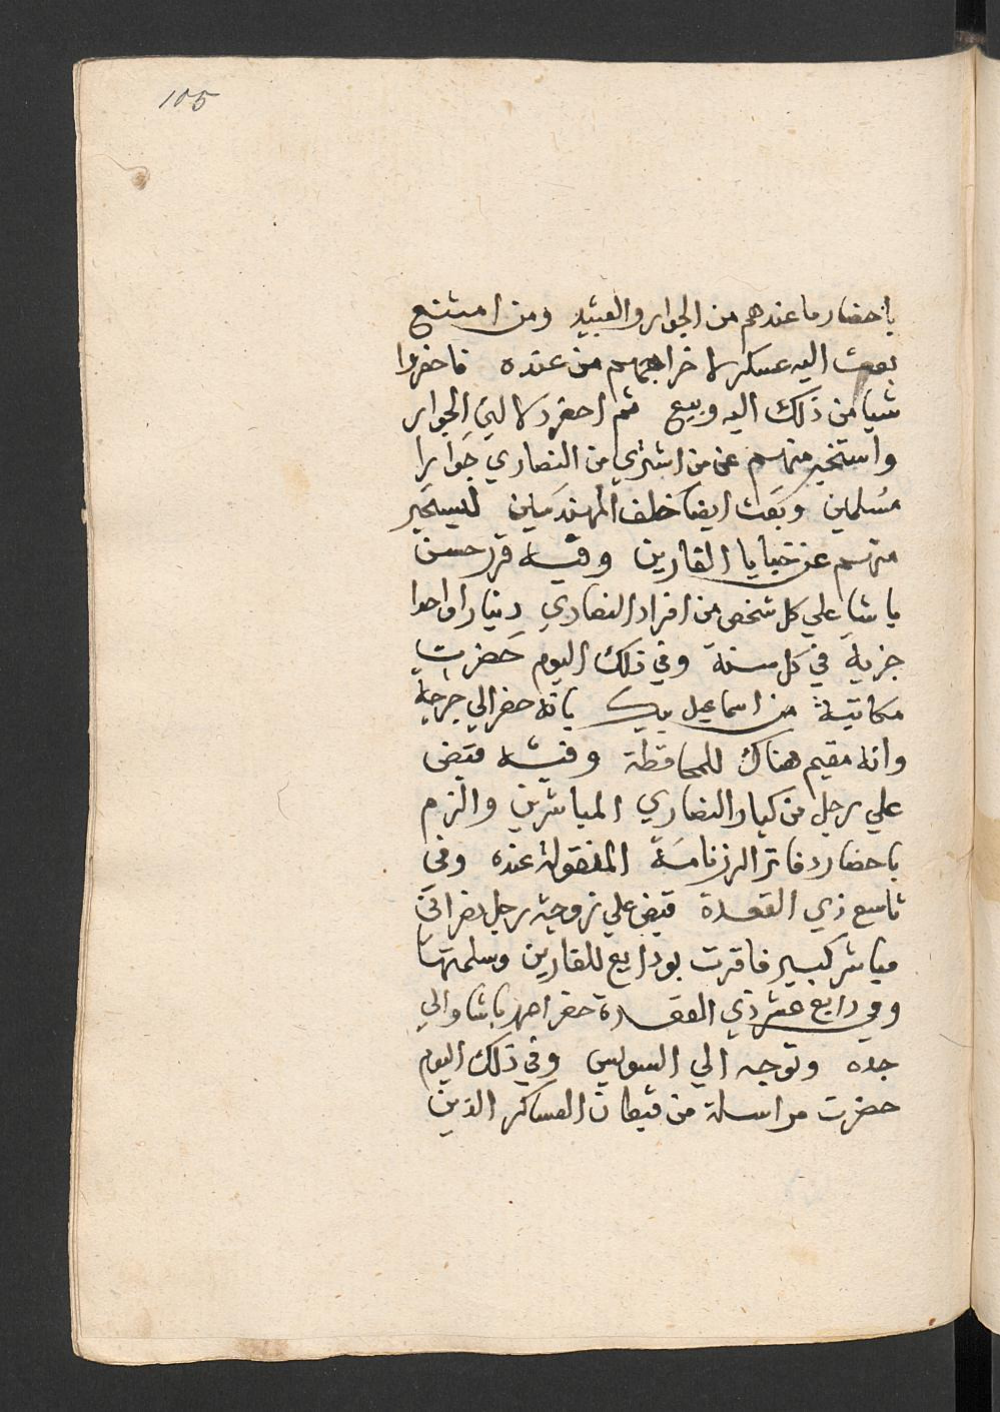 105
باحضار ما عندهم من الجوار والعبيد ومن امتنع
بعث اليه عسكر لاخراجهم من عنده فاحضروا
شيا من ذلك اليه وبيع ثم احضر دلالين الجوار
واستخبر منهم عن من اشتري من النصاري جوارا
مسلمين وبعث ايضا خلف المهندسين ليستخبر
منهم عن خبايا الفارين وفيه قرر حسن
باشا علي كل شخص من افراد النصاري دينارا واحدا
جزية في كل سنة وفي ذلك اليوم حضرت
مكاتبة من اسماعيل بيك بانه حضر الي جرجة
وانه مقيم هناك للمحافظة وفيه قبض
علي رجل من كبار النصاري المباشرين والزم
باحضار دفاتر الرزنامة المنقولة عنده وفي
تاسع ذي القعدة قبض علي زوجة رجل نصراني
مباشر كبير فاقرت بودايع للفارين وسلمتها
وفي رابع عشر ذي القعدة حضر احمد باشا والي
جده وتوجه الي السويس وفي ذلك اليوم
حضرت مراسلة من قبطان العساكر الذين